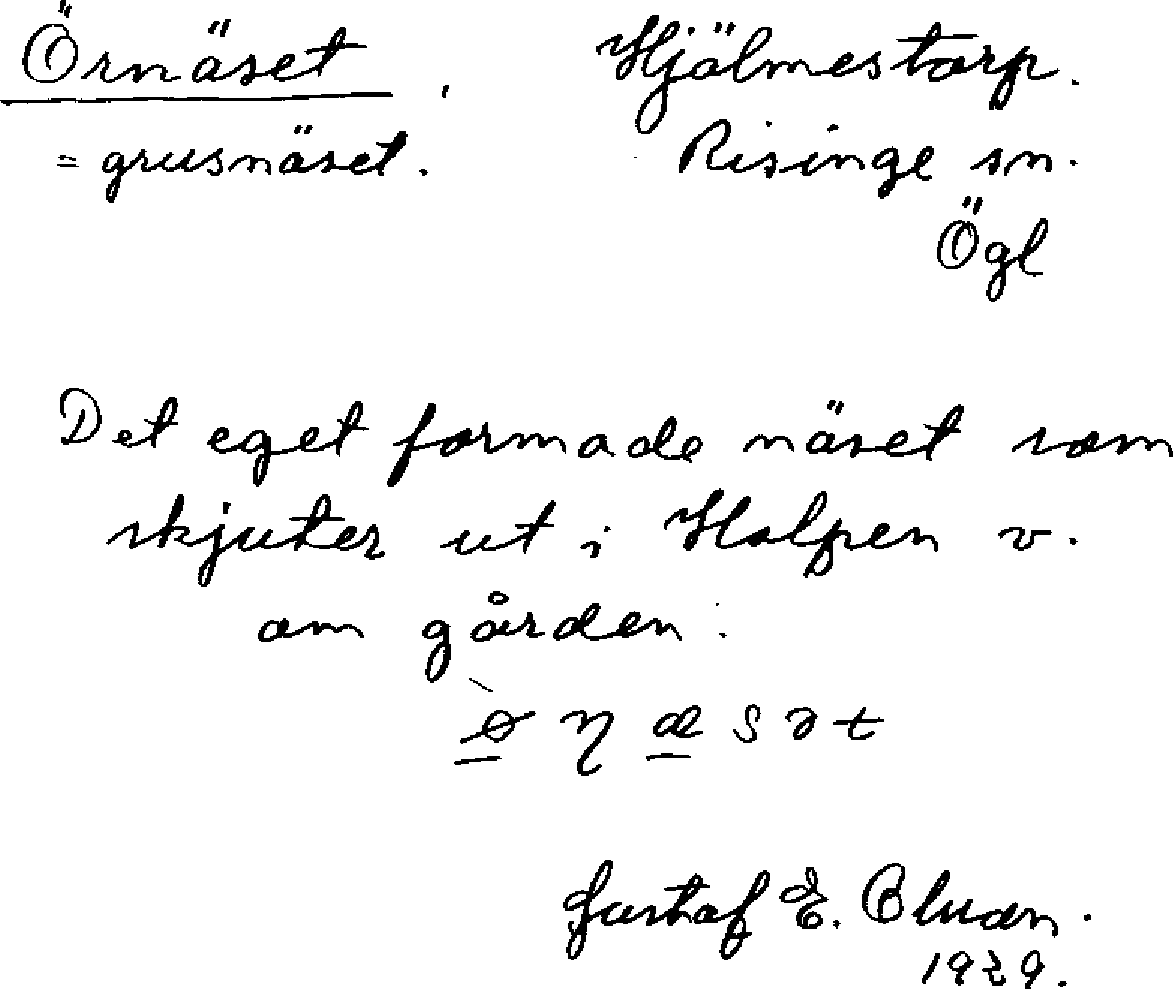 Örnäset, Hjälmestorp.
= grusnäset. Risinge sn.
Ögl
Det eget formade näset som
skjuter ut i Holpen v.
om gården.
Gustaf E.
1929.